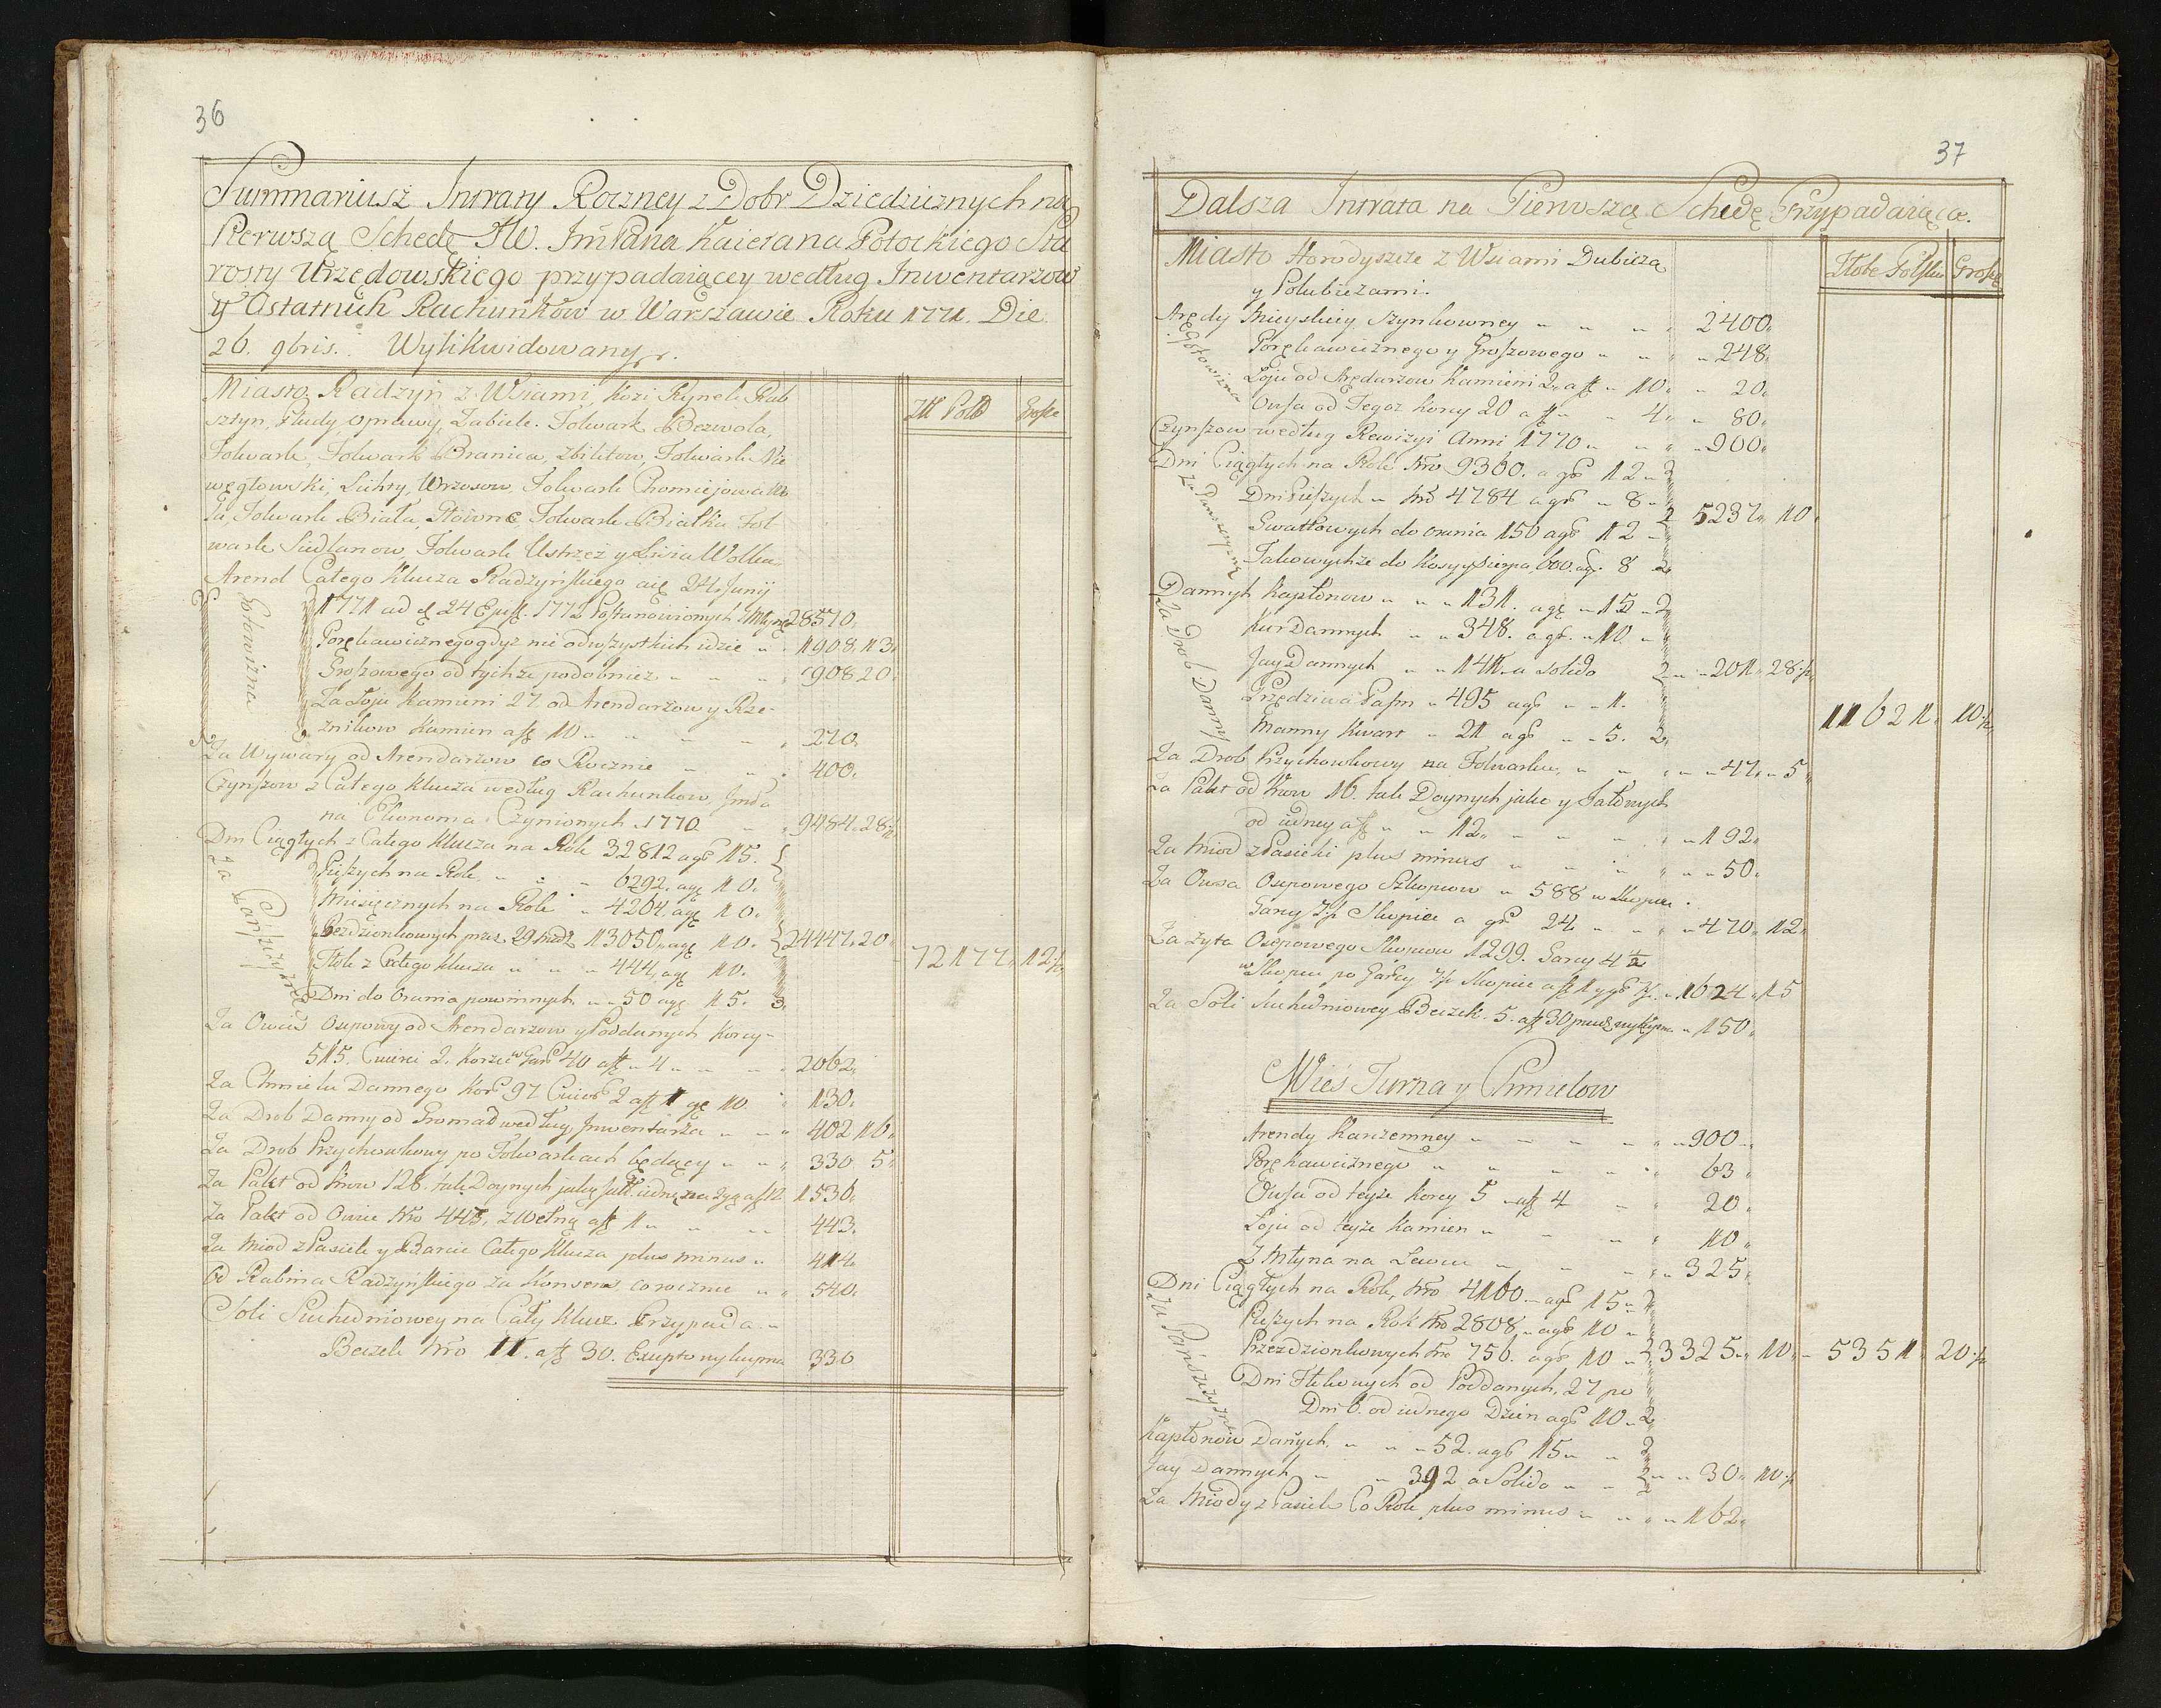 36
Summariusz Intraty Roczney z Dobr Dziedzicznych na
Pierwszą Schedę JW. Jm̃Pana Kaietana Potockiego Sta
rosty Urzędowskiego przypadaiącey według Inwentarzow
y Ostatnich Rachunkow w Warszawie Roku 1771. Die
26. 9bris. Wylikwidowany.
Miasto Radzyń z Wsiami, Kozi Rynek Rab
sztyn, Płudy Oprawy, Zabiele. Folwark Bezwola,
Folwark, Folwark Branica, Zbilitow, Folwark Nie
węgłowski, Lichty, Wrzosow, Folwark Chomiejowa Wo
la, Folwark Biała, Główne Folwark Białka Fol
wark Siedlanow, Folwark Ustrzeż y Lisia Wolka
Złł Pols Grosze
Arend Całego Klucza Radzyńskiego a die 24. Junij
1771 ad d 24 1772 Postanowionych z Młyn 28570.
Poręhawicznego gdyż nie od wszystkich idzie 1908. 13.
Groszowego od tychże podobnież 908 20.
Gotowizna
Za Łoju Kamieni 27 od Arendarzow y Rze-
znikow Kamien a ff 10 270.
Za Wywary od Arendarzow co Rocznie 400.
Czynszow z Całego Klucza według Rachunkow Jmda
na Ekonoma Czynionych 1770 9484. 28
Dni Ciągłych z Całego Klucza na Rok 32812 a g 15.
Pieszych na Rok 6292. a g 10.
Miesięcznych na Rok 4264. a g 10.
Za Pańszczyznę
Bezdzionkowych przez 29 Niedz 13050. a g 10. 24447. 20.
Stoh z Całego Klucza 444. a g 10.
72177. 12
Dni do Orania powinnych 50 a g 15.
Za Owies Osepowy od Arendarzow y Poddanych Korcy
515. Cwierci 2. Korzec w Gar 40 a ff 4 2062.
Za Chmielu Dannego Kor 97 Cwier 2 a ff 1 g 10 130.
Za Drob Danny od Gromad według Jnwentarza 402 16.
Za Drob Przychowkowy po Folwarkach będący 330 5.
Za Pakt od Krow 128. tak Doynych jako Jał. a ff 12 1536.
Za Pakt od Owiec Nro 443. z Wełną a ff 1 443.
Za Miod z Pasiek y Barcie Całego Klucza plus minus 414.
Od Rabina Radzyńskiego za Konsens corocznie 540.
Soli Suchedniowey na Cały Klucz Przypada
Beczek Nro 11. a ff 30. Excepto wykupna 330
37
Dalsza Intrata na Pierwszą Schedę Przypadaiąca.
Miasto Horodyszcze z Wsiami Dubiczą
y Połubiczami.
Złote Polskie Grosze
Arędy Mieyskiey Szynkowney 2400.
Poręhawicznego y Groszowego 248.
Gotowizna
Łoju od Arędarzow Kamieni 2. a ff 10. 20.
Owsa od Tegoz Korcy 20 a ff 4. 80.
Czynszow według Rewizyi Anni 1770 900.
Dni Ciągłych na Rok Nro 9360. a g 12
Dni Pieszych Nro 4784 a g 8
Za Panszczyznę
Gwałtowych do orania 150 a g 12 5237. 10.
Takowychże do Kosy y Sierpa 600. a g. 8
Dannych Kapłonow 131. a g 15
Kur Dannych 348. a g. 10.
Za Drob Danny
Jay Dannych 1411. a solido 201. 28
Przędziwa Pasm 495 a g 1.
Manny Kwart 21 a g 5.
11621. 10
Za Drob Przychowkowy na Folwarku 47. 5
Za Pakt od Krow 16. tak Doynych jako y Jałowych
od iedney a ff 12. 192.
Za Miod z Pasieki plus minus 50.
Za Owsa Osepowego Szkopcow 588 w Skopcu
Garcy 7 Skopiec a gr 24 470. 12.
Za żyta Osepowego Skopcow 1299. Garcy 4½
w Skopcu po Garcy 7 Skopiec a ff 1 y g 7. 1624. 15
Za Soli Suchedniowey Beczek. 5. a ff 30 150.
Wieś Turna y Chmielow
Arendy Karczemney 900
Poręhawicznego 63.
Owsa od teyże Korcy 5 a ff 4 20.
Łoju od teyże Kamien 10.
Z Młyna na Lewce 325.
Dni Ciągłych na Rok, Nro 4160. a g 15
Pieszych na Rok Nro 2808. a g 10
Za Pańszczyznę
Przezdzionkowych Nro 756. a g 10 3325. 10. 5351. 20
Dni Stohowych od Poddanych 27 po
Dni 6. od iednego Dzien a g 10
Kapłonow Dan̄ych 52. a g 15
Jay Dannych 392 a Solido 30. 10
Za Miody z Pasiek Co Rok plus minus 162.